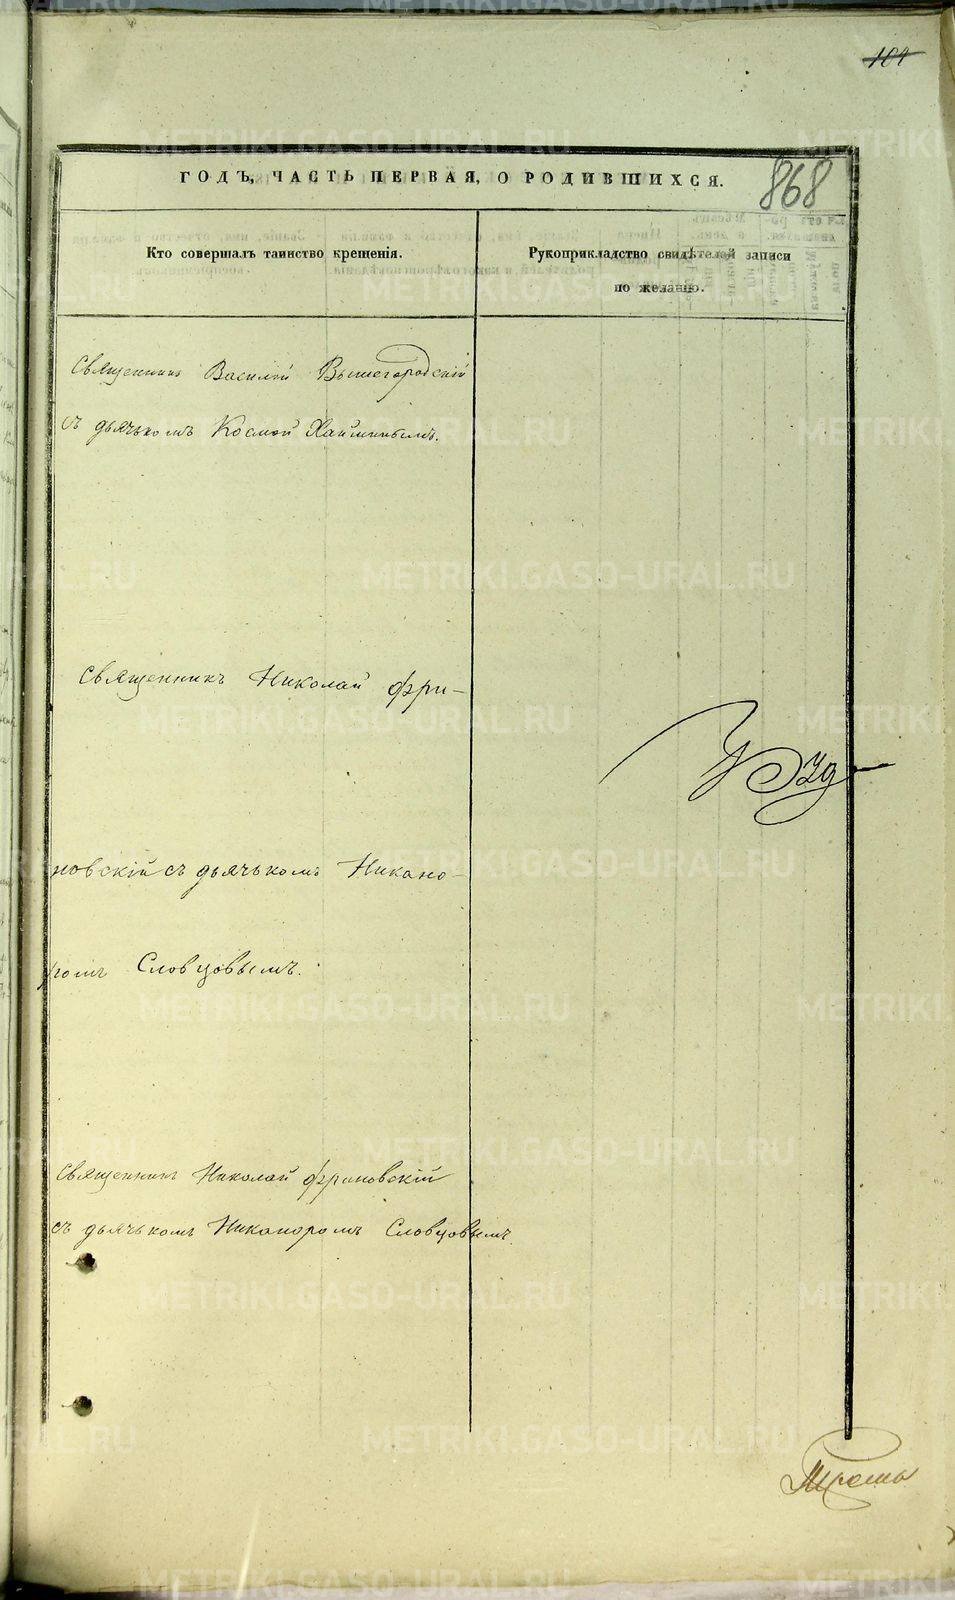 104
ГОДЪ, ЧАСТЬ ПЕРВАЯ, О РОДИВШИХСЯ.
868
Кто совершалъ таинство крещенія.
Рукоприкладство свидѣтелей записи
по желанію.
Священникъ Василій Вышегородскій
съ дьячькомъ Космой
Священникъ Николай Фри-
новскій съ дьячькомъ Никано-
ромъ Словцовымъ.
Священникъ Николай Фриновскій
съ дьячькомъ Никаноромъ Словцовымъ.
METRIKI.GASO-URAL.RU